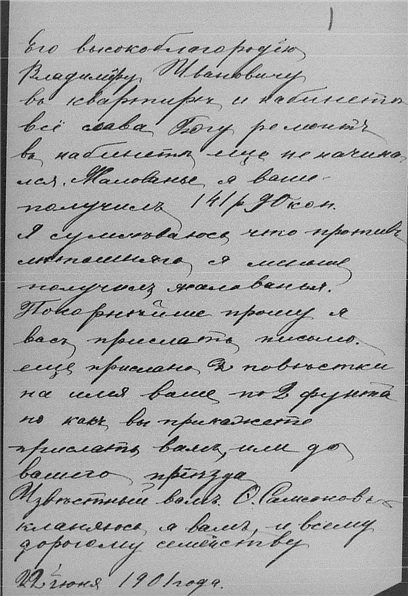 Его высокоблагородію
Владиміру Ивановичу
въ квартирѣ и кабинетѣ
всё слава Богу ремонтъ
въ кабинетѣ еще не начина
лся. Жалованье я ваше
получилъ 141 р 90 коп.
Я сумлѣваюсь что противъ
я меньше
получилъ жалованья.
Покорнѣйше прошу я
васъ прислать письмо.
еще прислано 2 повѣстки
на имя ваше по 2 фунта
но какъ вы прикажете
прислать вамъ или до
вашего пріѣзда
Извѣстный вамъ О. Самсоновъ
кланяюсь я вамъ и всему
дорогому семейству
22 іюня 1901 года.